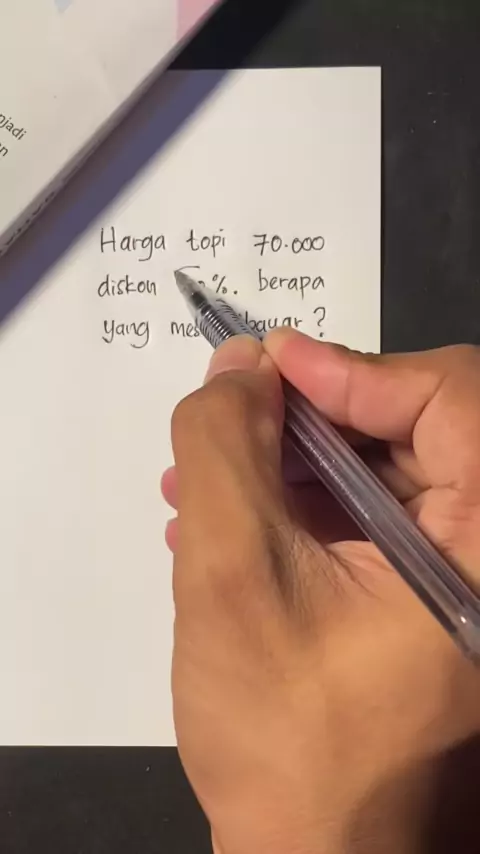 jadi
n
Harga topi 70.000
diskon %. berapa
yang bayar?